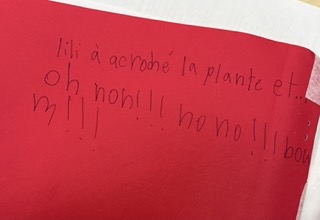 lili à acroché la plante et...
oh non!!! no no!!! bou
m!!!